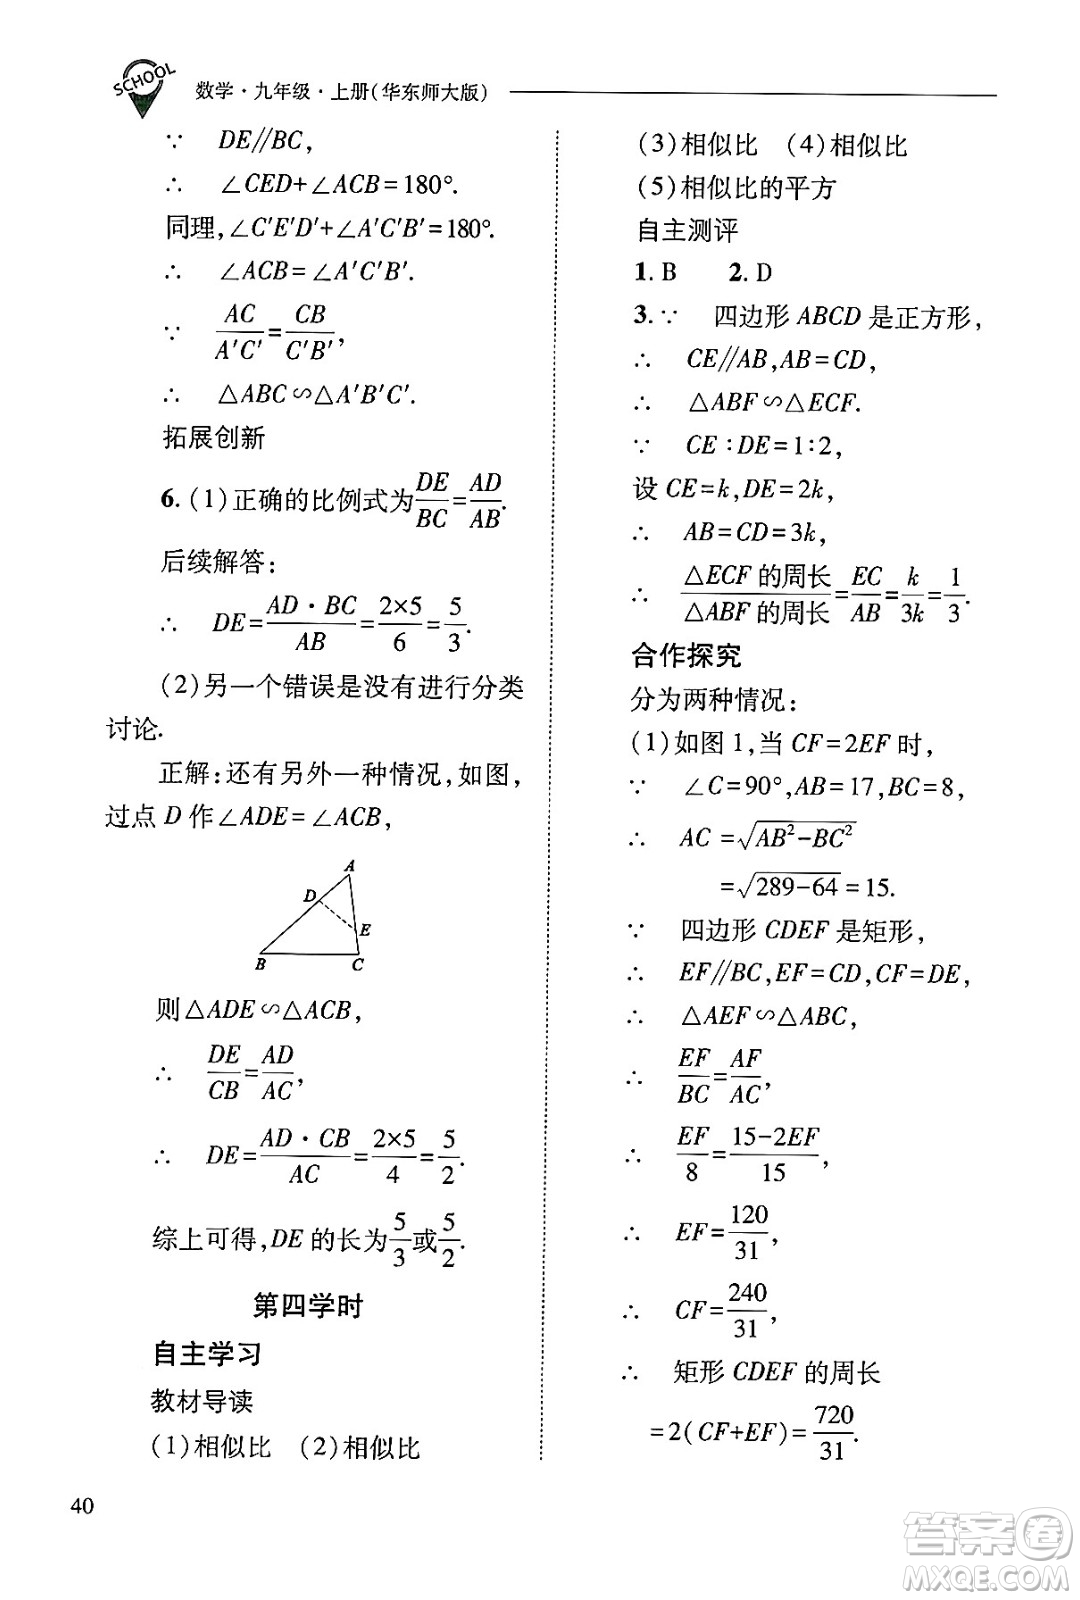 SCHOOL
数学·九年级·上册(华东师大版)
∵ DE∥BC,
∴ ∠CED+∠ACB=180°.
同理,∠C′E′D′+∠A′C′B′=180°.
∴ ∠ACB=∠A′C′B′.
∵ AC/A′C′=CB/C′B′,
∴ △ABC∽△A′B′C′.
拓展创新
6.(1)正确的比例式为DE/BC=AD/AB.
后续解答:
∴ DE=AD·BC/AB=2×5/6=5/3.
(2)另一个错误是没有进行分类
讨论.
正解:还有另外一种情况,如图,
过点 D 作∠ADE=∠ACB,
A
D
E
B C
则△ADE∽△ACB,
∴ DE/CB=AD/AC,
∴ DE=AD·CB/AC=2×5/4=5/2.
综上可得,DE 的长为5/3或5/2.
第四学时
自主学习
教材导读
(1)相似比 (2)相似比
(3)相似比 (4)相似比
(5)相似比的平方
自主测评
1.B 2.D
3.∵ 四边形 ABCD 是正方形,
∴ CE∥AB,AB=CD,
∴ △ABF∽△ECF.
∵ CE∶DE=1∶2,
设 CE=k,DE=2k,
∴ AB=CD=3k,
∴ △ECF 的周长/△ABF 的周长=EC/AB=k/3k=1/3.
合作探究
分为两种情况:
(1)如图 1,当 CF=2EF 时,
∵ ∠C=90°,AB=17,BC=8,
∴ AC =√(AB²-BC²)
=√(289-64)=15.
∵ 四边形 CDEF 是矩形,
∴ EF∥BC,EF=CD,CF=DE,
∴ △AEF∽△ABC,
∴ EF/BC=AF/AC,
∴ EF/8=15-2EF/15,
∴ EF=120/31,
∴ CF=240/31,
∴ 矩形 CDEF 的周长
=2(CF+EF)=720/31.
40
答案卷
MXQE.COM